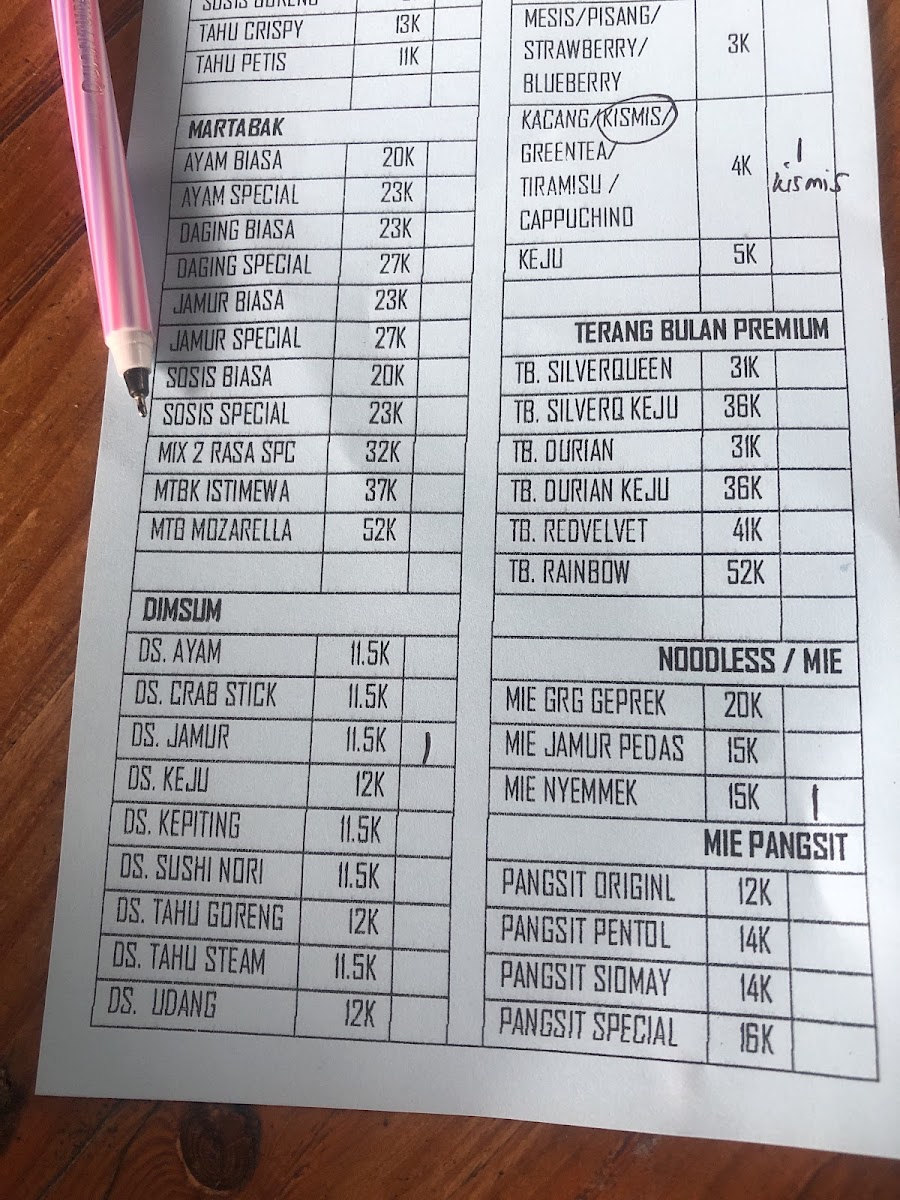 SOSIS GORENG
TAHU CRISPY 13K
TAHU PETIS 11K
MARTABAK
AYAM BIASA 20K
AYAM SPECIAL 23K
DAGING BIASA 23K
DAGING SPECIAL 27K
JAMUR BIASA 23K
JAMUR SPECIAL 27K
SOSIS BIASA 20K
SOSIS SPECIAL 23K
MIX 2 RASA SPC 32K
MTBK ISTIMEWA 37K
MTB MOZARELLA 52K
DIMSUM
DS. AYAM 11.5K
DS. CRAB STICK 11.5K
DS. JAMUR 11.5K 1
DS. KEJU 12K
DS. KEPITING 11.5K
DS. SUSHI NORI 11.5K
DS. TAHU GORENG 12K
DS. TAHU STEAM 11.5K
DS. UDANG 12K
MESIS/PISANG/
STRAWBERRY/ 3K
BLUEBERRY
KACANG/KISMIS/
GREENTEA/ 4K 1
TIRAMISU / kismis
CAPPUCHINO
KEJU 5K
TERANG BULAN PREMIUM
TB. SILVERQUEEN 31K
TB. SILVERQ KEJU 36K
TB. DURIAN 31K
TB. DURIAN KEJU 36K
TB. REDVELVET 41K
TB. RAINBOW 52K
NOODLESS / MIE
MIE GRG GEPREK 20K
MIE JAMUR PEDAS 15K
MIE NYEMMEK 15K 1
MIE PANGSIT
PANGSIT ORIGINL 12K
PANGSIT PENTOL 14K
PANGSIT SIOMAY 14K
PANGSIT SPECIAL 16K